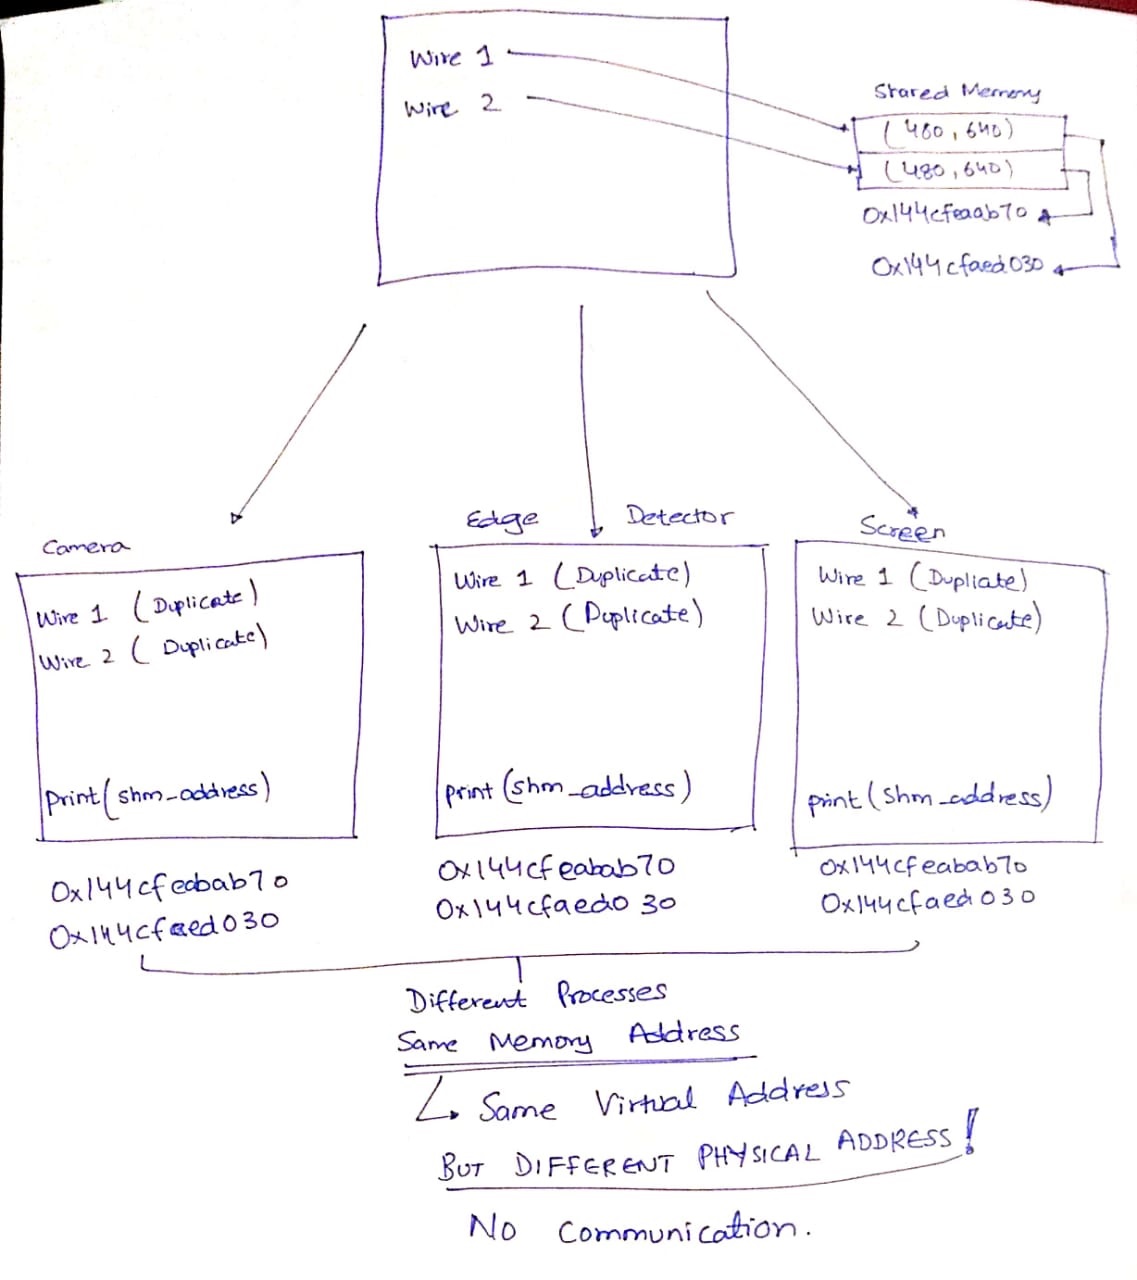 Wire 1
Wire 2
Shared Memory
(480, 640)
(480, 640)
0x144cfeaab70
0x144cfaed030
Camera
Wire 1 (Duplicate)
Wire 2 (Duplicate)
print(shm_address)
0x144cfeabab70
0x144cfaed030
Edge Detector
Wire 1 (Duplicate)
Wire 2 (Duplicate)
print (shm_address)
0x144cfeabab70
0x144cfaed030
Screen
Wire 1 (Dupliate)
Wire 2 (Duplicate)
print (shm_address)
0x144cfeabab70
0x144cfaed030
Different Processes
Same Memory Address
Same Virtual Address
BUT DIFFERENT PHYSICAL ADDRESS!
No Communication.